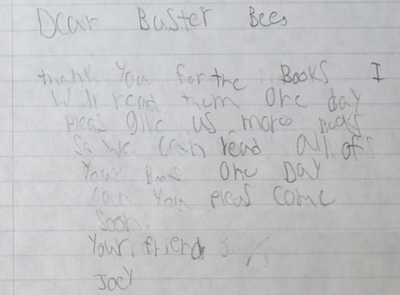 Dear Buster Bees
thank you for the Books I
will read them one day
pleas give us more books
So we can read all of
Your Books one Day
can you pleas come
soon.
Your friend
Joey